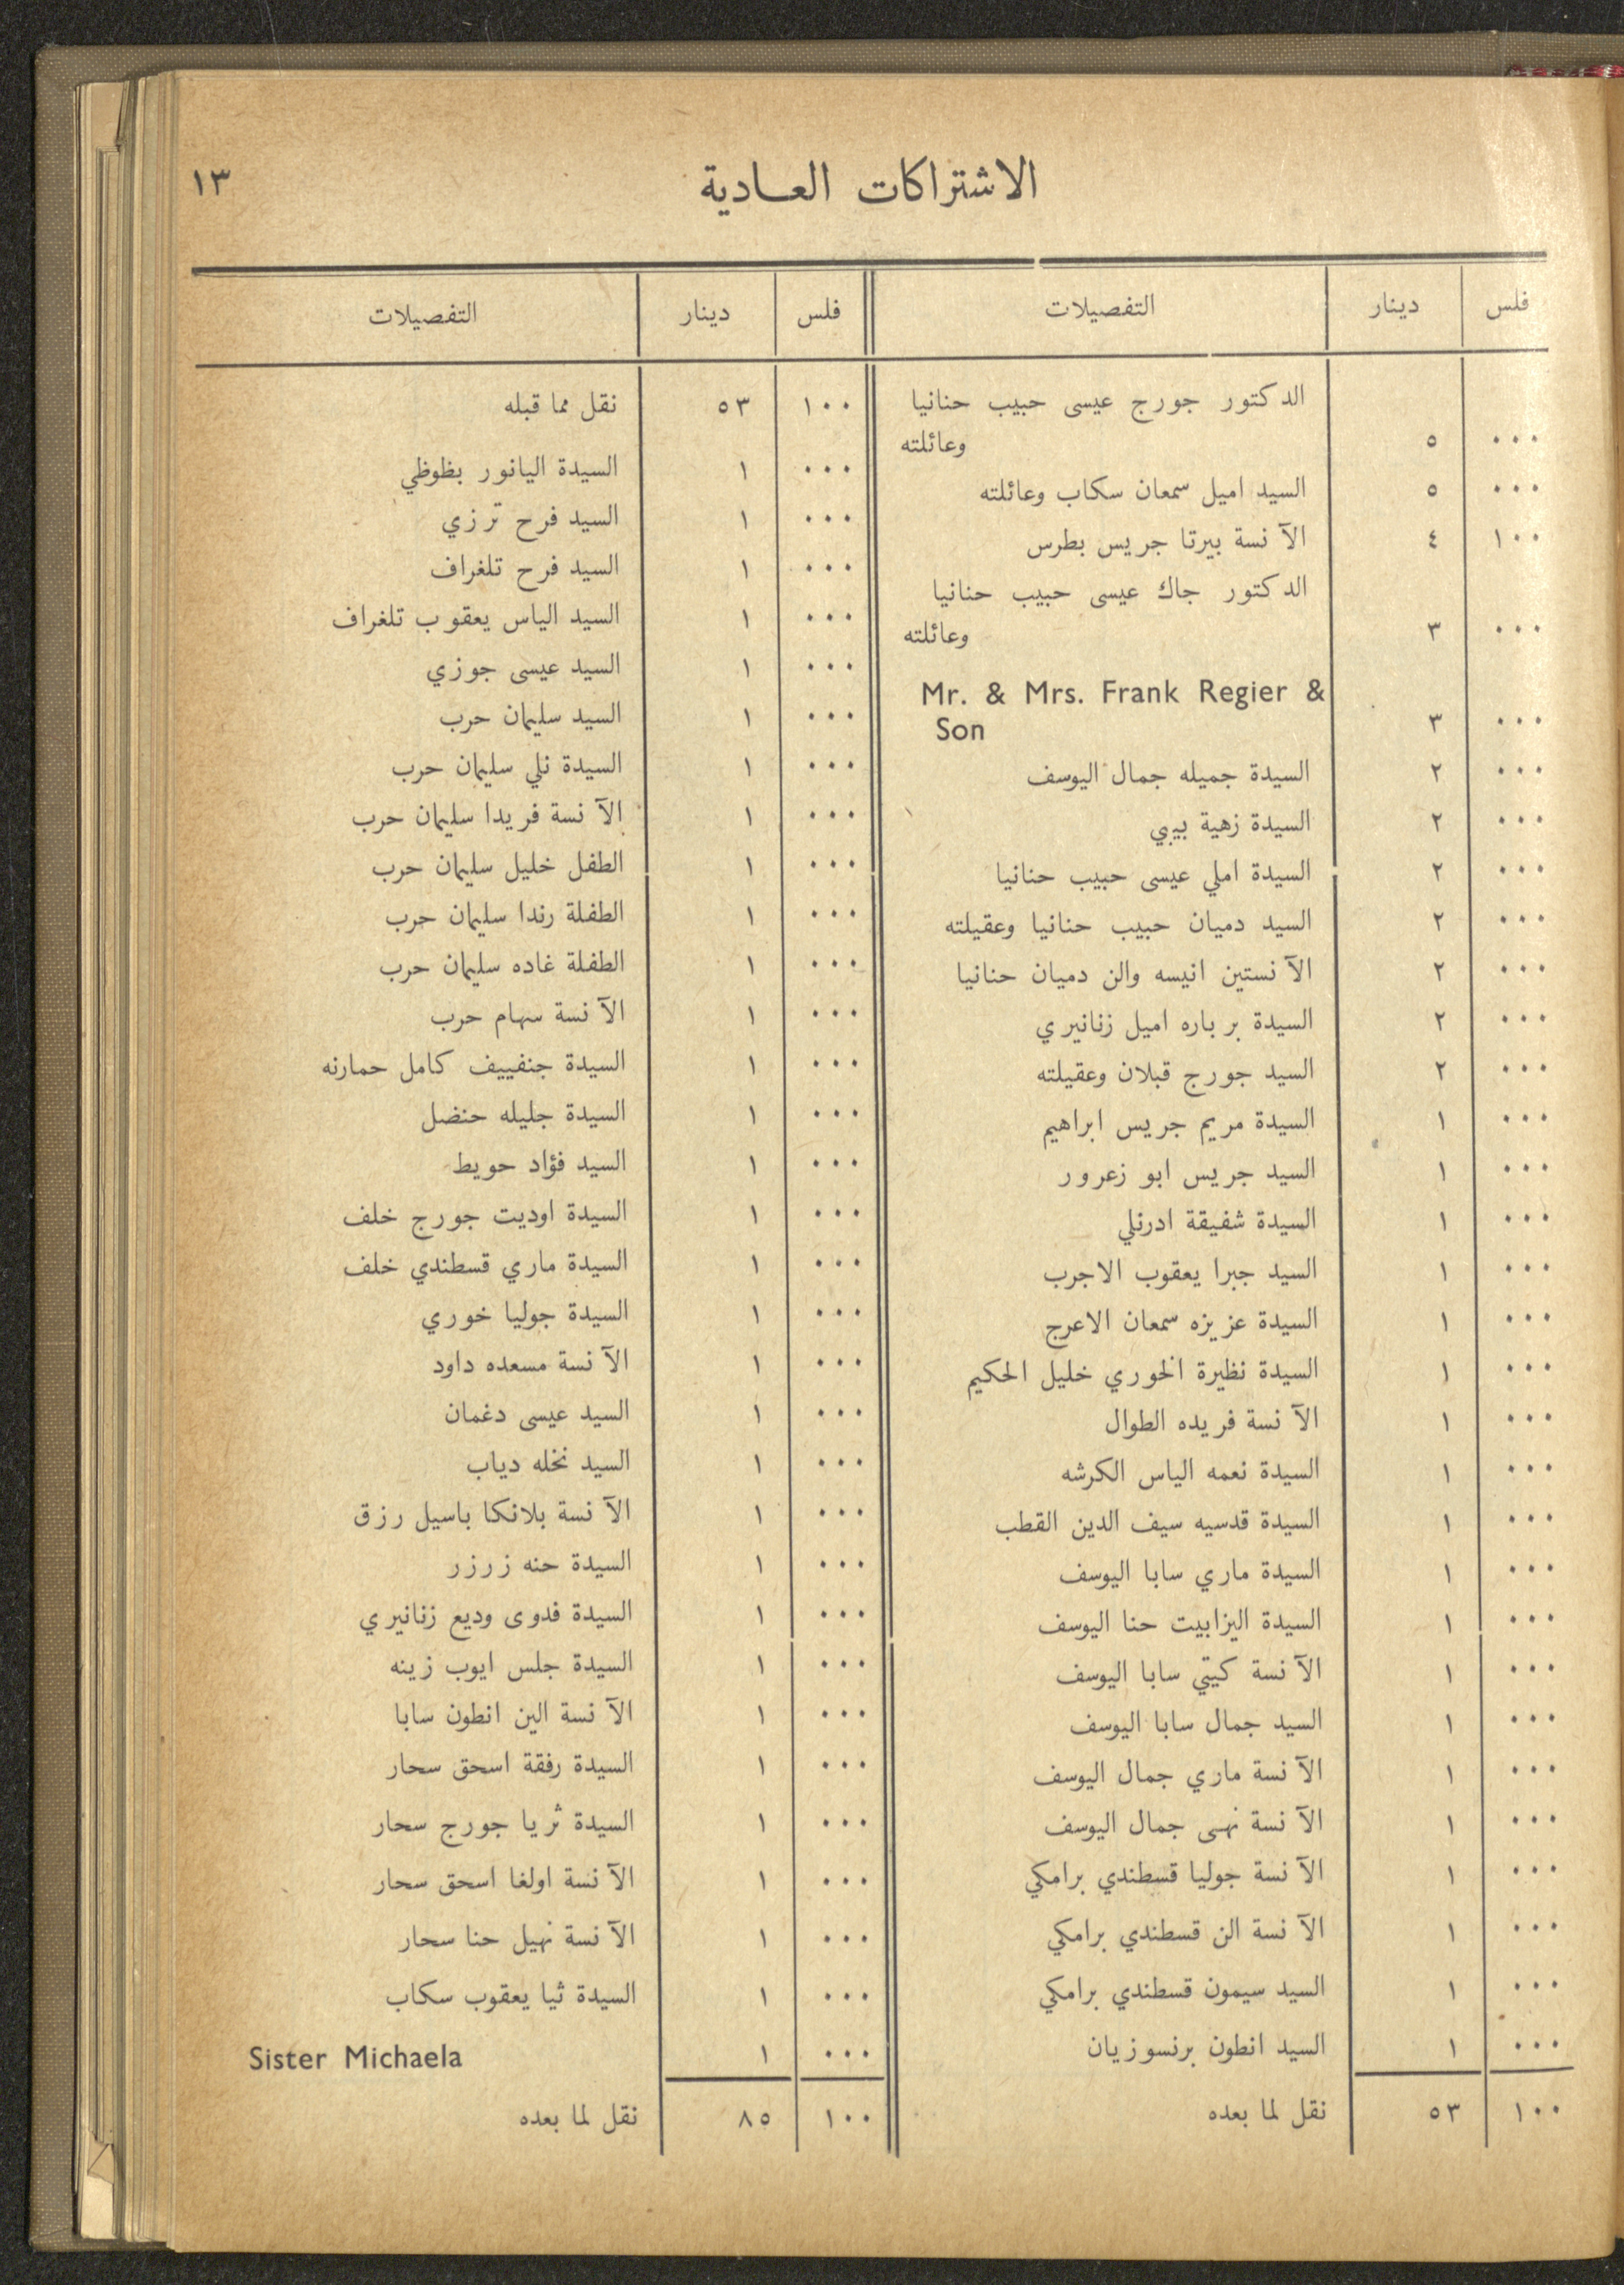 ١٣
الاشتراكات العادية
فلس دينار التفصيلات
الدكتور جورج عيسى حبيب حنانيا
٠٠٠ ٥ وعائلته
٠٠٠ ٥ السيد اميل سمعان سكاب وعائلته
١٠٠ ٤ الآنسة بيرتا جريس بطرس
الدكتور جاك عيسى حبيب حنانيا
٠٠٠ ٣ وعائلته
Mr. & Mrs. Frank Regier &
٠٠٠ ٣ Son
٠٠٠ ٢ السيدة جميله جمال اليوسف
٠٠٠ ٢ السيدة زهية بيبي
٠٠٠ ٢ السيدة املي عيسى حبيب حنانيا
٠٠٠ ٢ السيد دميان حبيب حنانيا وعقيلته
٠٠٠ ٢ الآنستين انيسه والن دميان حنانيا
٠٠٠ ٢ السيدة برباره اميل زنانيري
٠٠٠ ٢ السيد جورج قبلان وعقيلته
٠٠٠ ١ السيدة مريم جريس ابراهيم
٠٠٠ ١ السيد جريس ابو زعرور
٠٠٠ ١ السيدة شفيقة ادرنلي
٠٠٠ ١ السيد جبرا يعقوب الاجرب
٠٠٠ ١ السيدة عزيزه سمعان الاعرج
٠٠٠ ١ السيدة نظيرة الخوري خليل الحكيم
٠٠٠ ١ الآنسة فريده الطوال
٠٠٠ ١ السيدة نعمه الياس الكرشه
٠٠٠ ١ السيدة قدسيه سيف الدين القطب
٠٠٠ ١ السيدة ماري سابا اليوسف
٠٠٠ ١ السيدة اليزابيت حنا اليوسف
٠٠٠ ١ الآنسة كيتي سابا اليوسف
٠٠٠ ١ السيد جمال سابا اليوسف
٠٠٠ ١ الآنسة ماري جمال اليوسف
٠٠٠ ١ الآنسة نهى جمال اليوسف
٠٠٠ ١ الآنسة جوليا قسطندي برامكي
٠٠٠ ١ الآنسة الن قسطندي برامكي
٠٠٠ ١ السيد سيمون قسطندي برامكي
٠٠٠ ١ السيد انطون برنسوزيان
١٠٠ ٥٣ نقل لما بعده
فلس دينار التفصيلات
١٠٠ ٥٣ نقل مما قبله
٠٠٠ ١ السيدة اليانور بظوظي
٠٠٠ ١ السيد فرح ترزي
٠٠٠ ١ السيد فرح تلغراف
٠٠٠ ١ السيد الياس يعقوب تلغراف
٠٠٠ ١ السيد عيسى جوزي
٠٠٠ ١ السيد سليمان حرب
٠٠٠ ١ السيدة نلي سليمان حرب
٠٠٠ ١ الآنسة فريدا سليمان حرب
٠٠٠ ١ الطفل خليل سليمان حرب
٠٠٠ ١ الطفلة رندا سليمان حرب
٠٠٠ ١ الطفلة غاده سليمان حرب
٠٠٠ ١ الآنسة سهام حرب
٠٠٠ ١ السيدة جنفييف كامل حمارنه
٠٠٠ ١ السيدة جليله حنضل
٠٠٠ ١ السيد فؤاد حويط
٠٠٠ ١ السيدة اوديت جورج خلف
٠٠٠ ١ السيدة ماري قسطندي خلف
٠٠٠ ١ السيدة جوليا خوري
٠٠٠ ١ الآنسة مسعده داود
٠٠٠ ١ السيد عيسى دغمان
٠٠٠ ١ السيد نخله دياب
٠٠٠ ١ الآنسة بلانكا باسيل رزق
٠٠٠ ١ السيدة حنه زرزر
٠٠٠ ١ السيدة فدوى وديع زنانيري
٠٠٠ ١ السيدة جلس ايوب زينه
٠٠٠ ١ الآنسة الين انطون سابا
٠٠٠ ١ السيدة رفقة اسحق سحار
٠٠٠ ١ السيدة ثريا جورج سحار
٠٠٠ ١ الآنسة اولغا اسحق سحار
٠٠٠ ١ الآنسة نهيل حنا سحار
٠٠٠ ١ السيدة ثيا يعقوب سكاب
٠٠٠ ١ Sister Michaela
١٠٠ ٨٥ نقل لما بعده